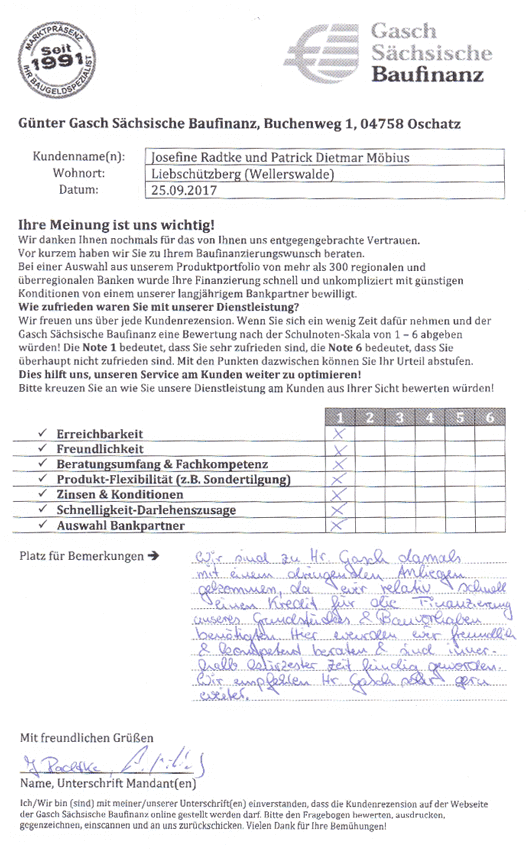 MARKTPRÄSENZ
Seit
1991
IHR BAUGELDSPEZIALIST
Gasch
Sächsische
Baufinanz
Günter Gasch Sächsische Baufinanz, Buchenweg 1, 04758 Oschatz
Kundenname(n): Josefine Radtke und Patrick Dietmar Möbius
Wohnort: Liebschützberg (Wellerswalde)
Datum: 25.09.2017
Ihre Meinung ist uns wichtig!
Wir danken Ihnen nochmals für das von Ihnen uns entgegengebrachte Vertrauen.
Vor kurzem haben wir Sie zu Ihrem Baufinanzierungswunsch beraten.
Bei einer Auswahl aus unserem Produktportfolio von mehr als 300 regionalen und
überregionalen Banken wurde Ihre Finanzierung schnell und unkompliziert mit günstigen
Konditionen von einem unserer langjährigem Bankpartner bewilligt.
Wie zufrieden waren Sie mit unserer Dienstleistung?
Wir freuen uns über jede Kundenrezension. Wenn Sie sich ein wenig Zeit dafür nehmen und der
Gasch Sächsische Baufinanz eine Bewertung nach der Schulnoten-Skala von 1 – 6 abgeben
würden! Die Note 1 bedeutet, dass Sie sehr zufrieden sind, die Note 6 bedeutet, dass Sie
überhaupt nicht zufrieden sind. Mit den Punkten dazwischen können Sie Ihr Urteil abstufen.
Dies hilft uns, unseren Service am Kunden weiter zu optimieren!
Bitte kreuzen Sie an wie Sie unsere Dienstleistung am Kunden aus Ihrer Sicht bewerten würden!
1 2 3 4 5 6
✓ Erreichbarkeit X
✓ Freundlichkeit X
✓ Beratungsumfang & Fachkompetenz X
✓ Produkt-Flexibilität (z.B. Sondertilgung) X
✓ Zinsen & Konditionen X
✓ Schnelligkeit-Darlehenszusage X
✓ Auswahl Bankpartner X
Platz für Bemerkungen ➔ Wir sind zu Hr. Gasch damals
mit einem dringenden Anliegen
gekommen, da wir relativ schnell
einen Kredit für die Finanzierung
unseres Grundstückes & Bauvorhaben
benötigten. Hier wurden wir freundlich
& kompetent beraten & sind inner-
halb kürzester Zeit fündig geworden.
Wir empfehlen Hr. Gasch sehr gern
weiter.
Mit freundlichen Grüßen
J. Radtke
Name, Unterschrift Mandant(en)
Ich/Wir bin (sind) mit meiner/unserer Unterschrift(en) einverstanden, dass die Kundenrezension auf der Webseite
der Gasch Sächsische Baufinanz online gestellt werden darf. Bitte den Fragebogen bewerten, ausdrucken,
gegenzeichnen, einscannen und an uns zurückschicken. Vielen Dank für Ihre Bemühungen!